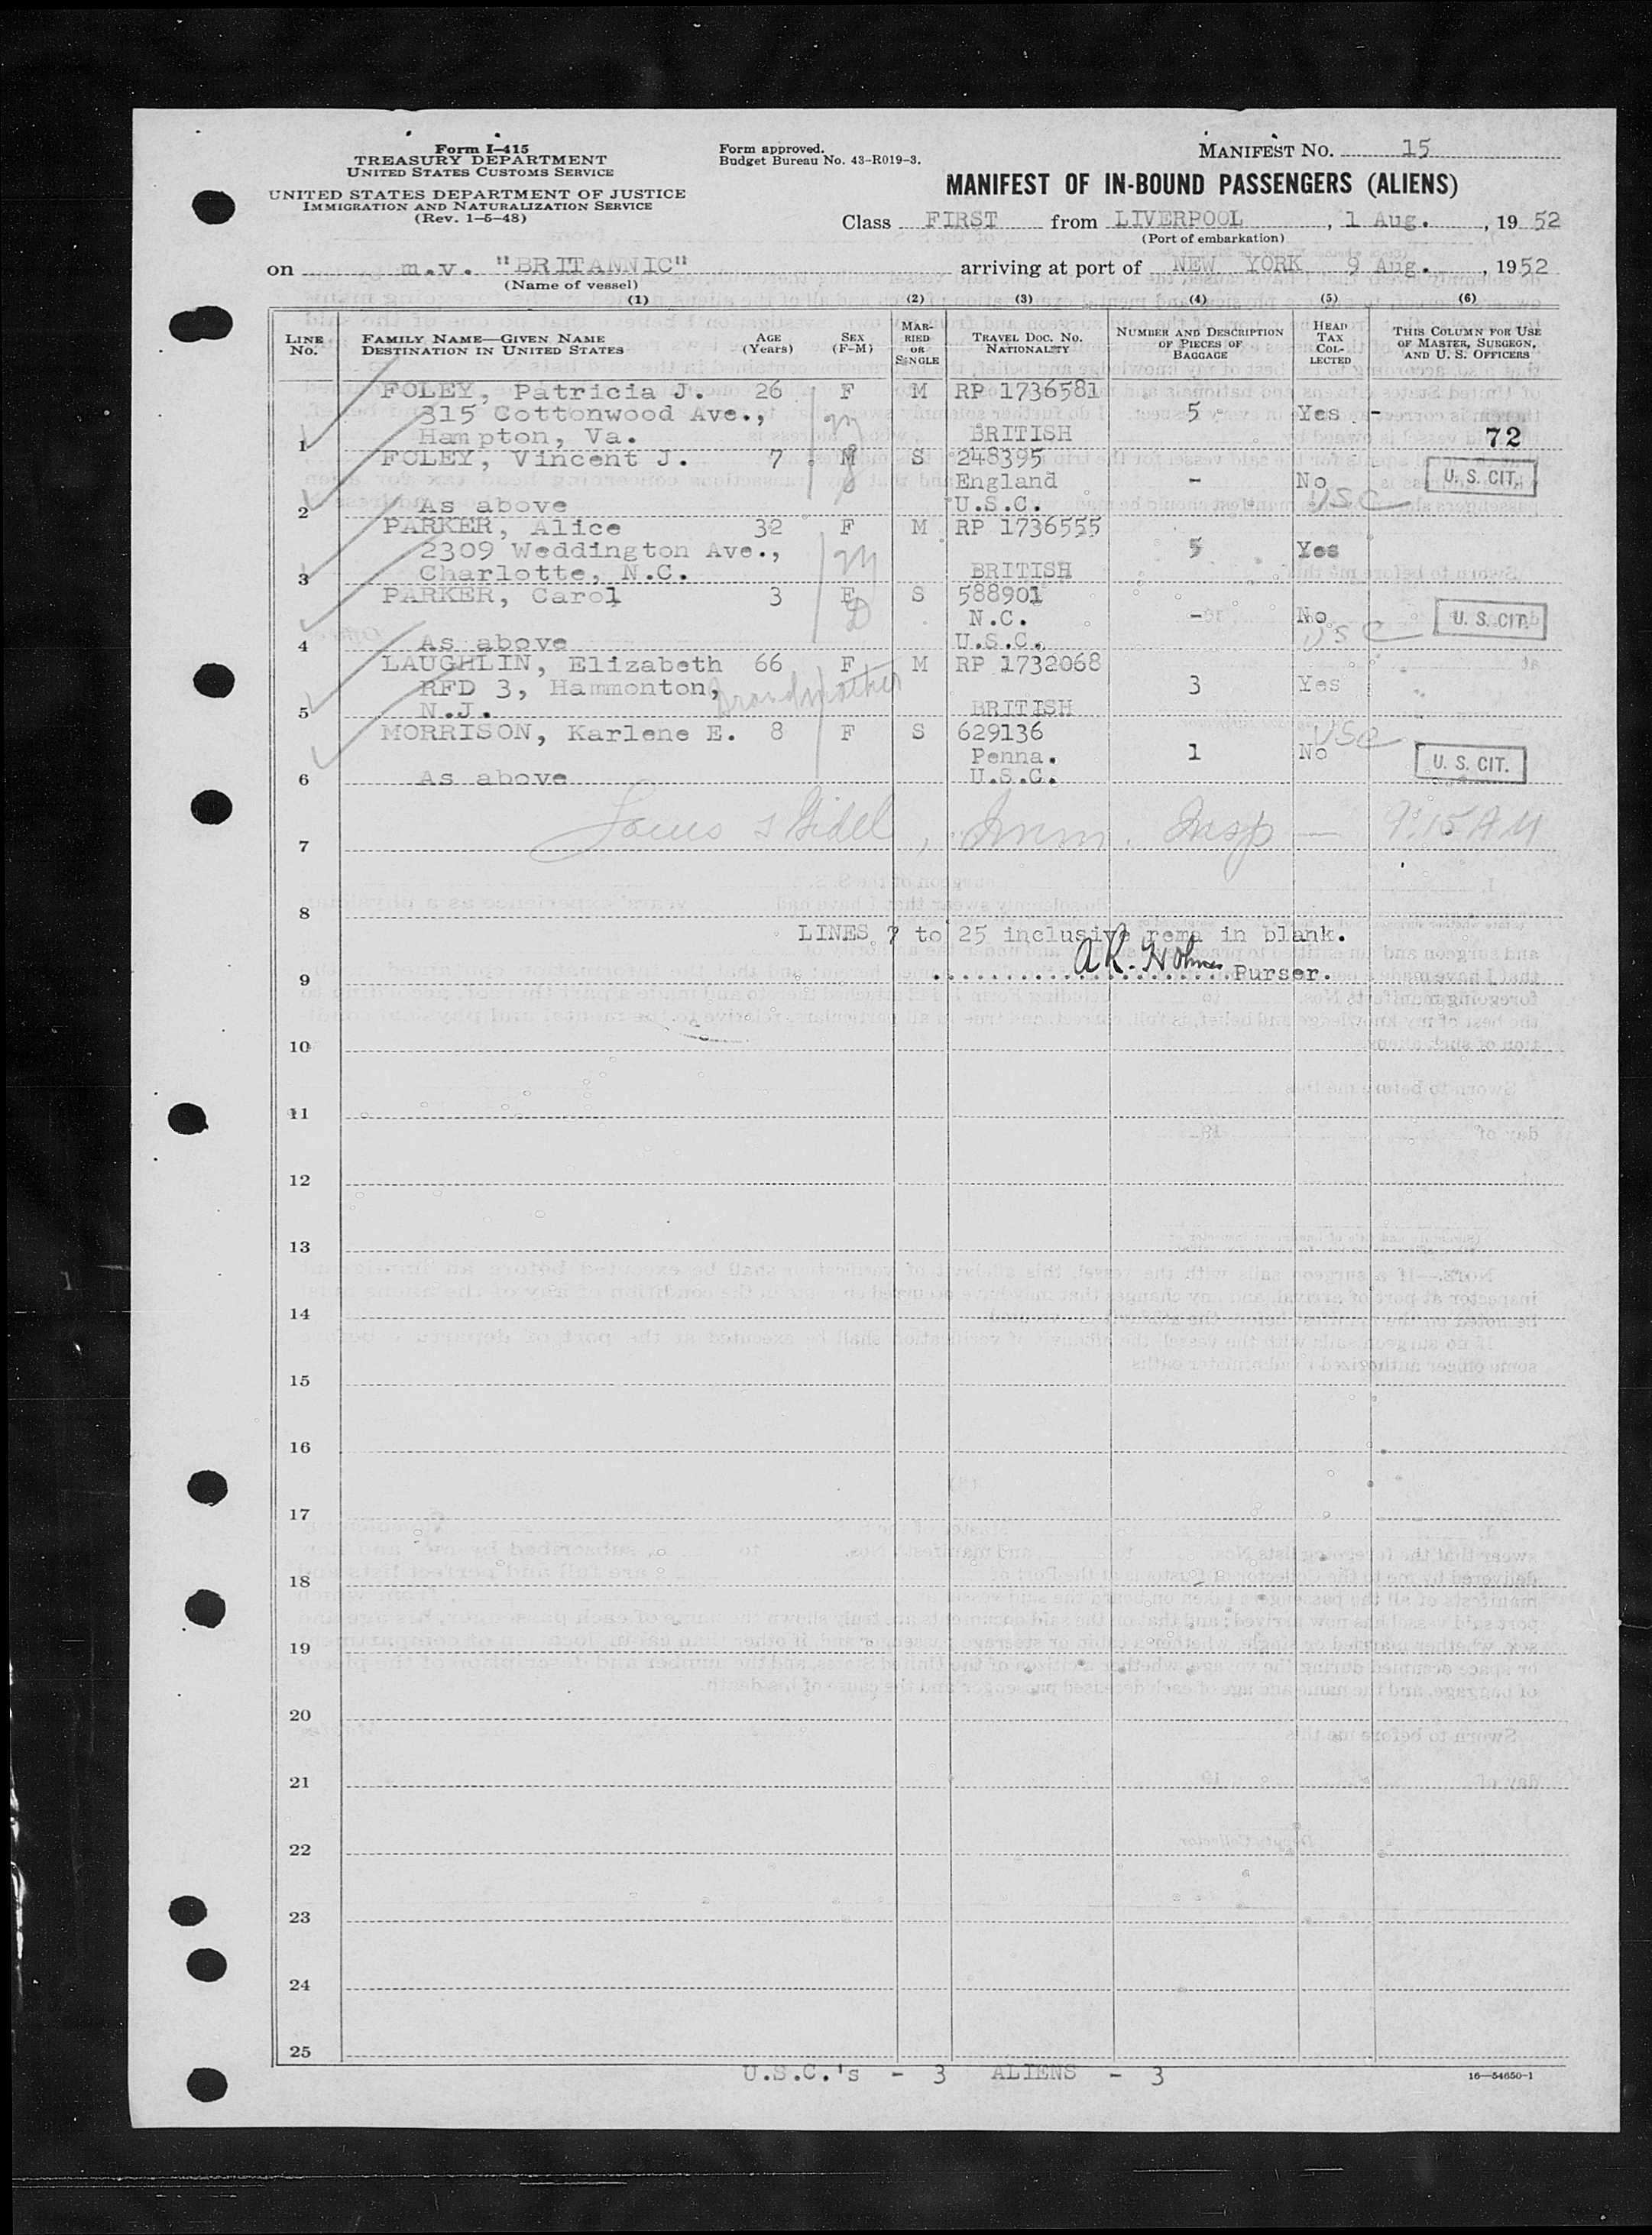 Form I-415
TREASURY DEPARTMENT
UNITED STATES CUSTOMS SERVICE
UNITED STATES DEPARTMENT OF JUSTICE
IMMIGRATION AND NATURALIZATION SERVICE
(Rev. 1-5-48)
Form approved.
Budget Bureau No. 43-R019-3.
MANIFEST NO. 15
MANIFEST OF IN-BOUND PASSENGERS (ALIENS)
Class FIRST from LIVERPOOL, 1 Aug., 1952
(Port of embarkation)
on m.v. "BRITANNIC" arriving at port of NEW YORK 9 Aug., 1952
(Name of vessel)
(1) (2) (3) (4) (5) (6)
LINE No. FAMILY NAME—GIVEN NAME DESTINATION IN UNITED STATES AGE (Years) SEX (F-M) MARRIED OR SINGLE TRAVEL DOC. NO. NATIONALITY NUMBER AND DESCRIPTION OF PIECES OF BAGGAGE HEAD TAX COLLECTED THIS COLUMN FOR USE OF MASTER, SURGEON, AND U. S. OFFICERS
FOLEY, Patricia J. 26 F M RP 1736581
315 Cottonwood Ave., 5 Yes -
1 Hampton, Va. BRITISH 72
FOLEY, Vincent J. 7 M S 248395
England - No U. S. CIT.
USC
2 As above U.S.C.
PARKER, Alice 32 F M RP 1736555
2309 Weddington Ave., 5 Yes
3 Charlotte, N.C. BRITISH
PARKER, Carol 3 F S 588901
N.C. - No U. S. CIT.
USC
4 As above U.S.C.
LAUGHLIN, Elizabeth 66 F M RP 1732068
RFD 3, Hammonton, Grandmother 3 Yes
5 N.J. BRITISH
MORRISON, Karlene E. 8 F S 629136 USC
Penna. 1 No U. S. CIT.
6 As above U.S.C.
7 Imm. Insp — 9:15 AM
8
LINES 7 to 25 inclusive rema in blank.
A R. Holmes
9 Purser.
10
11
12
13
14
15
16
17
18
19
20
21
22
23
24
25
U.S.C.'s - 3 ALIENS - 3
16—54650-1